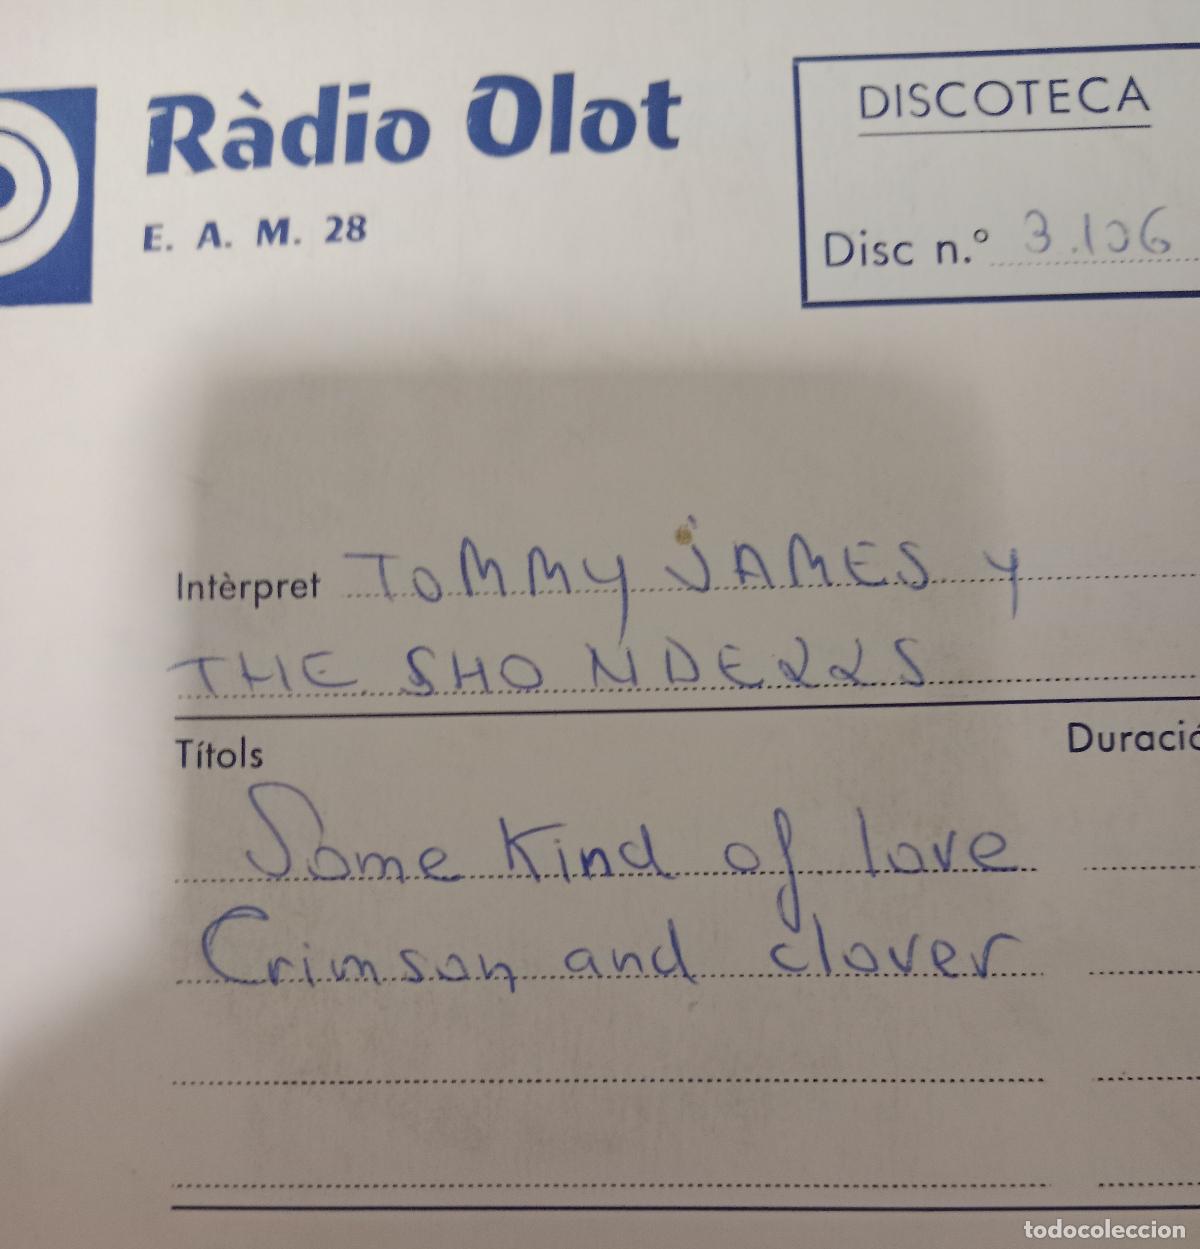 Ràdio Olot
E. A. M. 28
DISCOTECA
Disc n.º 3.106
Intèrpret TOMMY JAMES y
THE SHONDELLS
Títols
Duració
Some Kind of love
Crimson and clover
todocoleccion